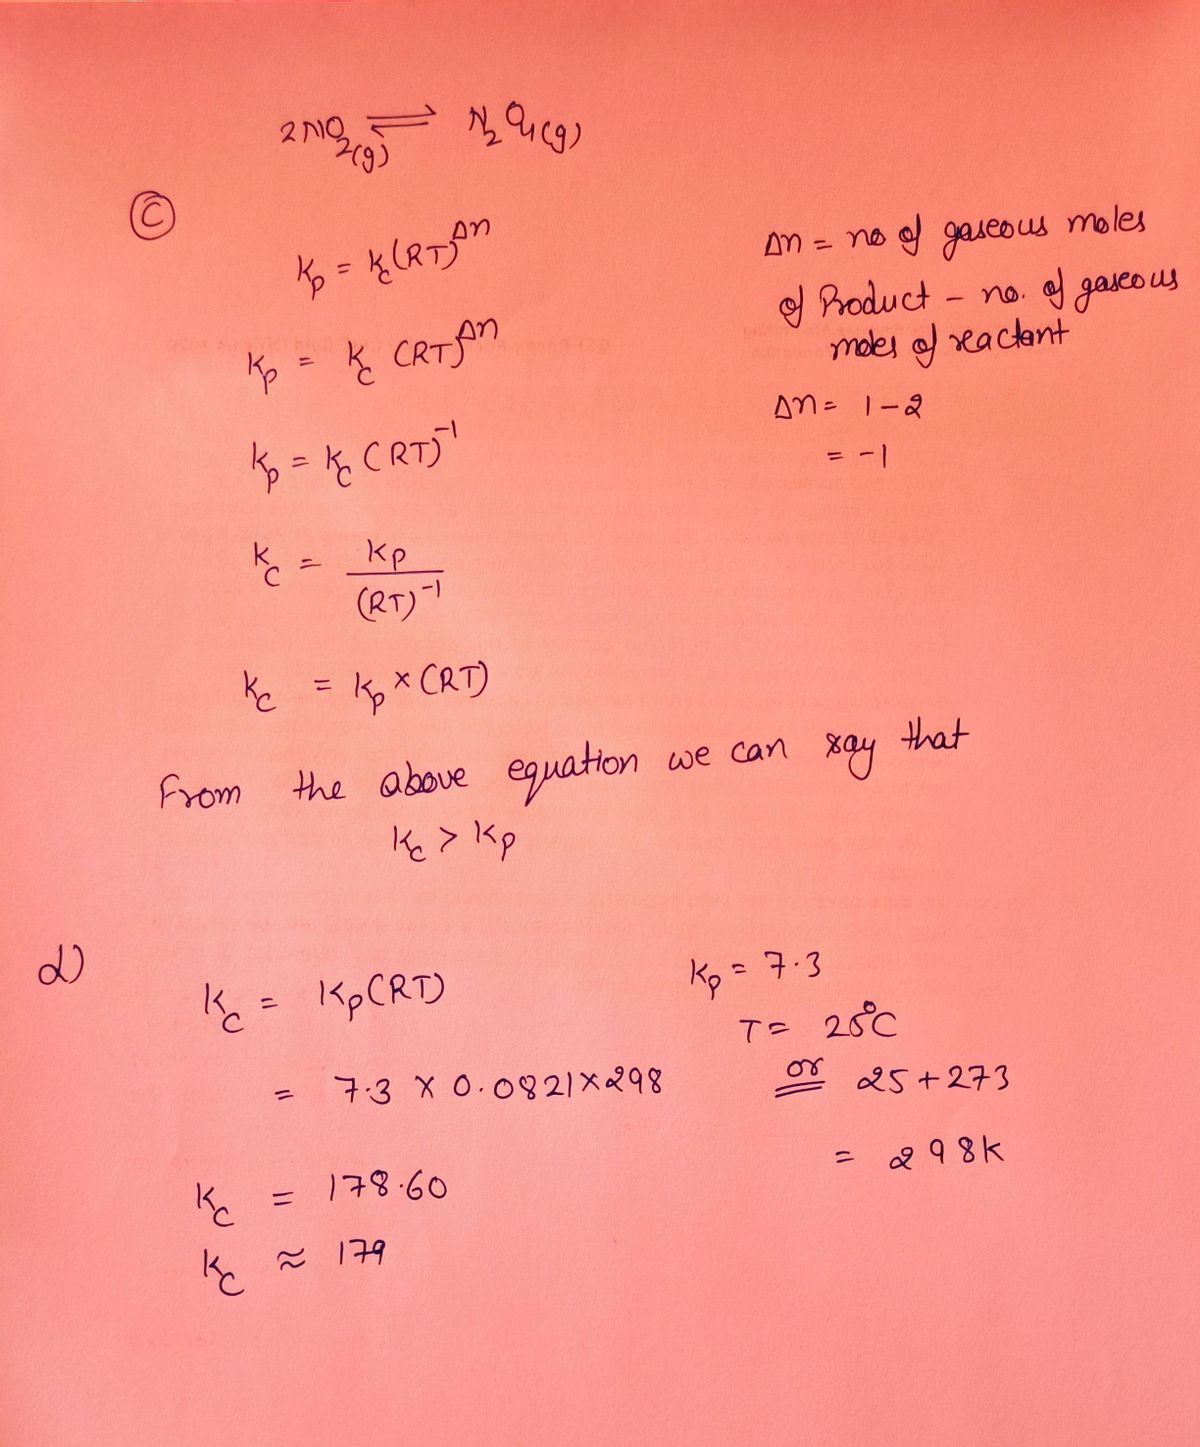 2NO2(g) ⇌ N2O4(g)
(C)
Kp = Kc(RT)^Δn
Kp = Kc (RT)^Δn
Kp = Kc (RT)^-1
Kc = Kp / (RT)^-1
Kc = Kp × (RT)
Δn = no of gaseous moles
of Product - no. of gaseous
moles of reactant
Δn = 1-2
= -1
From the above equation we can say that
Kc > Kp
d)
Kc = Kp(RT)
= 7.3 × 0.0821 × 298
Kc = 178.60
Kc ≈ 179
Kp = 7.3
T = 25°C
or 25 + 273
= 298k